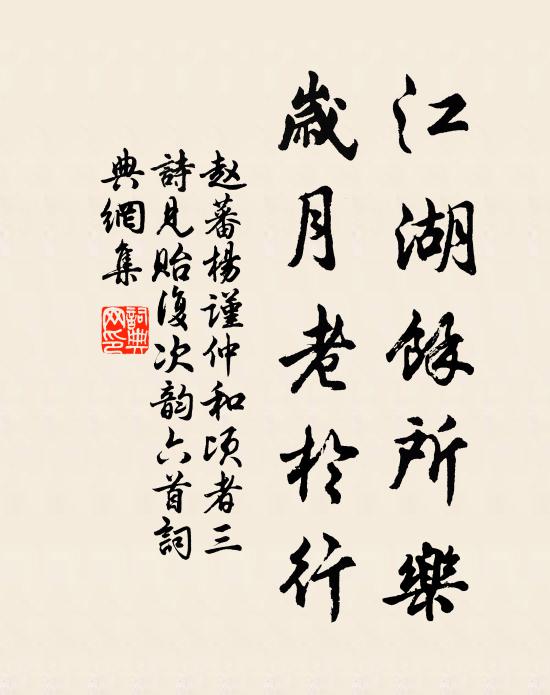 江湖餘所樂
歲月老於行
赵蕃楊謹仲和頃者三
詩見貽復次韵六首詞
典網集
詞典网印